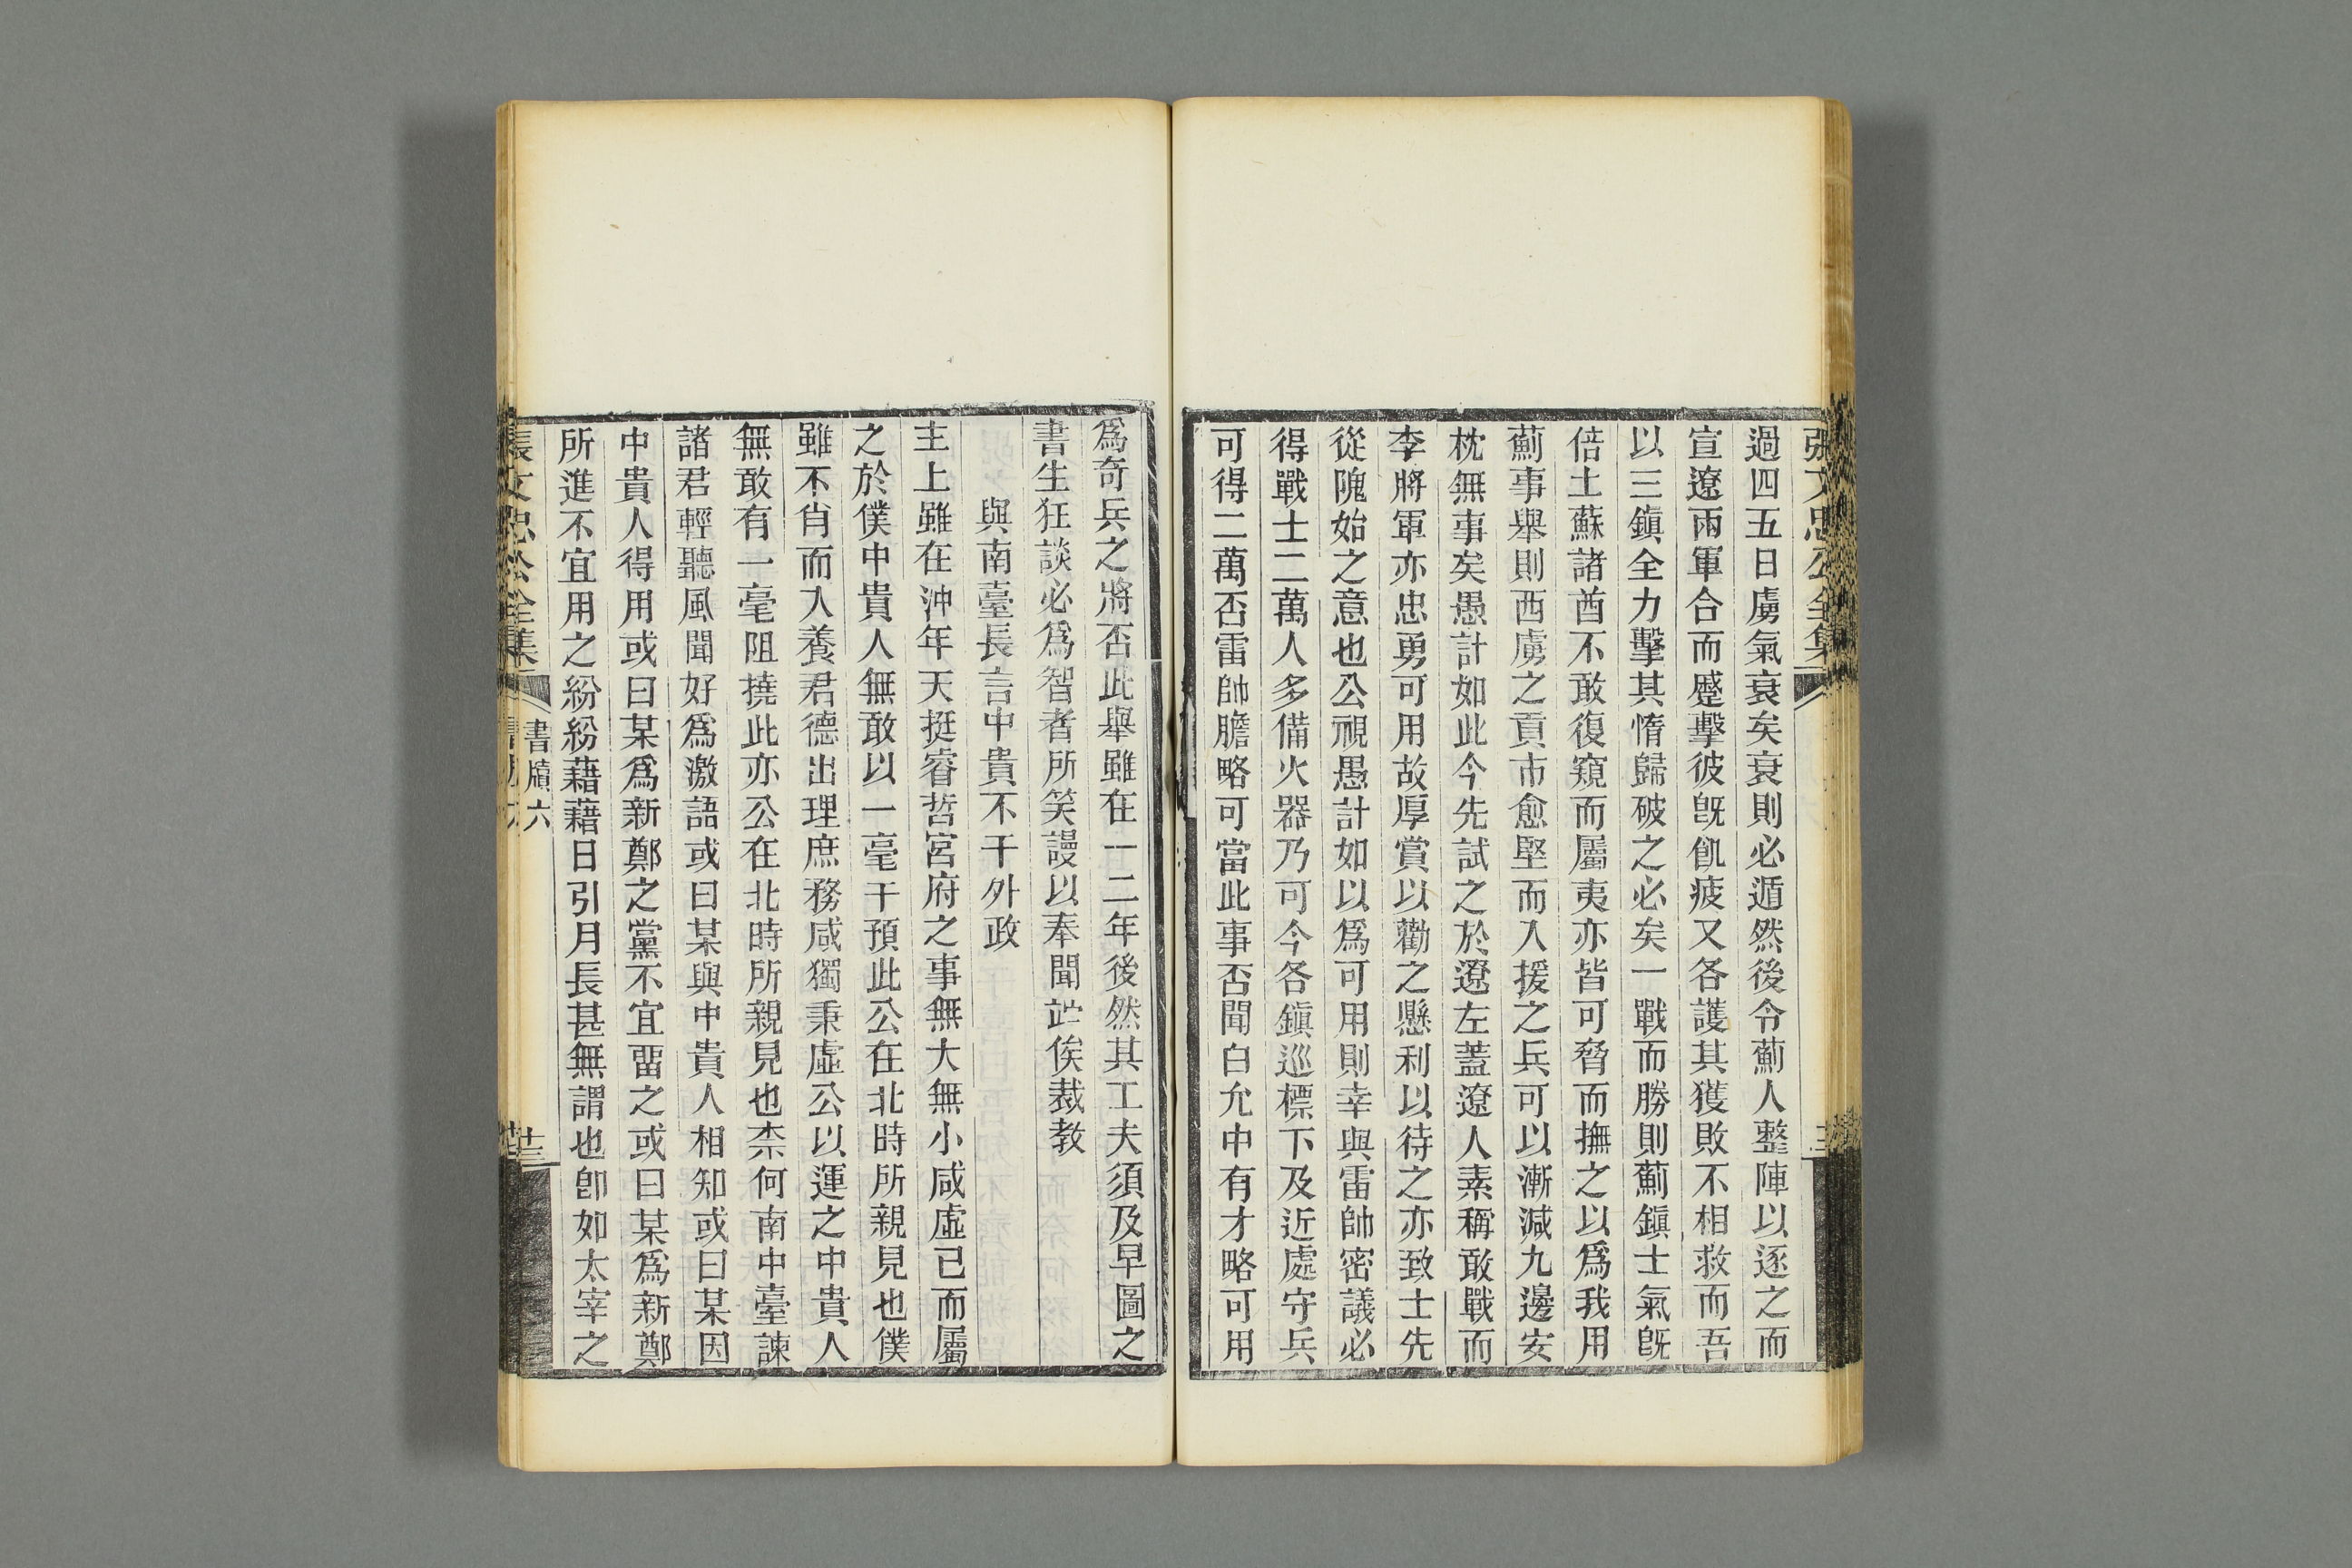 張文忠公全集
過四五日虜氣衰矣衰則必遁然後令薊人整陣以逐之而
宣遼兩軍合而蹙擊彼旣飢疲又各護其獲敗不相救而吾
以三鎭全力擊其惰歸破之必矣一戰而勝則薊鎭士氣旣
倍土蘇諸酋不敢復窺而屬夷亦皆可脅而撫之以爲我用
薊事舉則西虜之貢市愈堅而入援之兵可以漸減九邊安
枕無事矣愚計如此今先試之於遼左蓋遼人素稱敢戰而
李將軍亦忠勇可用故厚賞以勸之懸利以待之亦致士先
從隗始之意也公視愚計如以爲可用則幸與雷帥密議必
得戰士二萬人多備火器乃可今各鎭巡標下及近處守兵
可得二萬否雷帥膽略可當此事否聞白允中有才略可用
爲奇兵之將否此舉雖在一二年後然其工夫須及早圖之
書生狂談必爲智者所笑謾以奉聞竚俟裁教
與南臺長言中貴不干外政
主上雖在沖年天挺睿哲宮府之事無大無小咸虛己而屬
之於僕中貴人無敢以一毫干預此公在北時所親見也僕
雖不肖而入養君德出理庶務咸獨秉虛公以運之中貴人
無敢有一毫阻撓此亦公在北時所親見也柰何南中臺諫
諸君輕聽風聞好爲激語或曰某與中貴人相知或曰某因
中貴人得用或曰某爲新鄭之黨不宜畱之或曰某爲新鄭
所進不宜用之紛紛藉藉日引月長甚無謂也卽如太宰之
張文忠公全集
書牘六